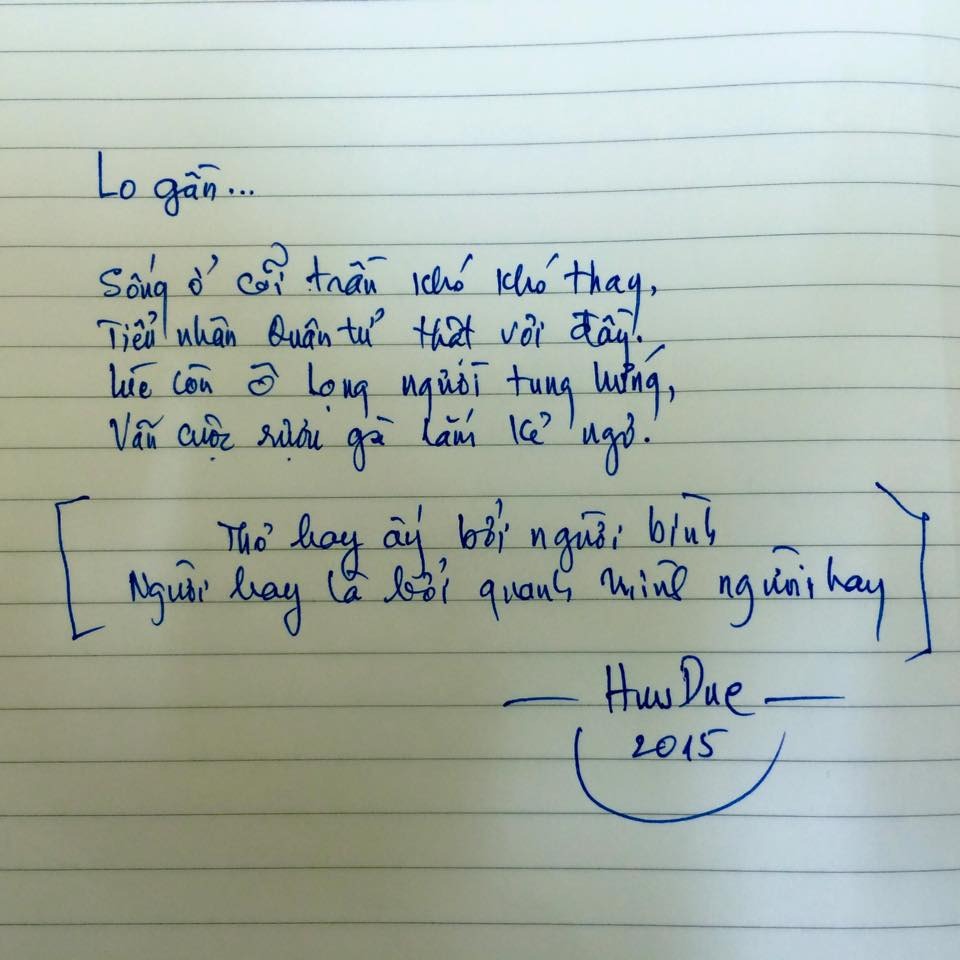 Lo gần...
Sống ở cõi trần khó khó thay,
Tiểu nhân Quân tử thật với đầy.
còn ô lọng người tung hứng,
Vẫn cuộc rượu gà lắm kẻ ngơ.
Thơ hay ấy bởi người bình
Người hay là bởi quanh mình người hay
— HuuDuc —
2015